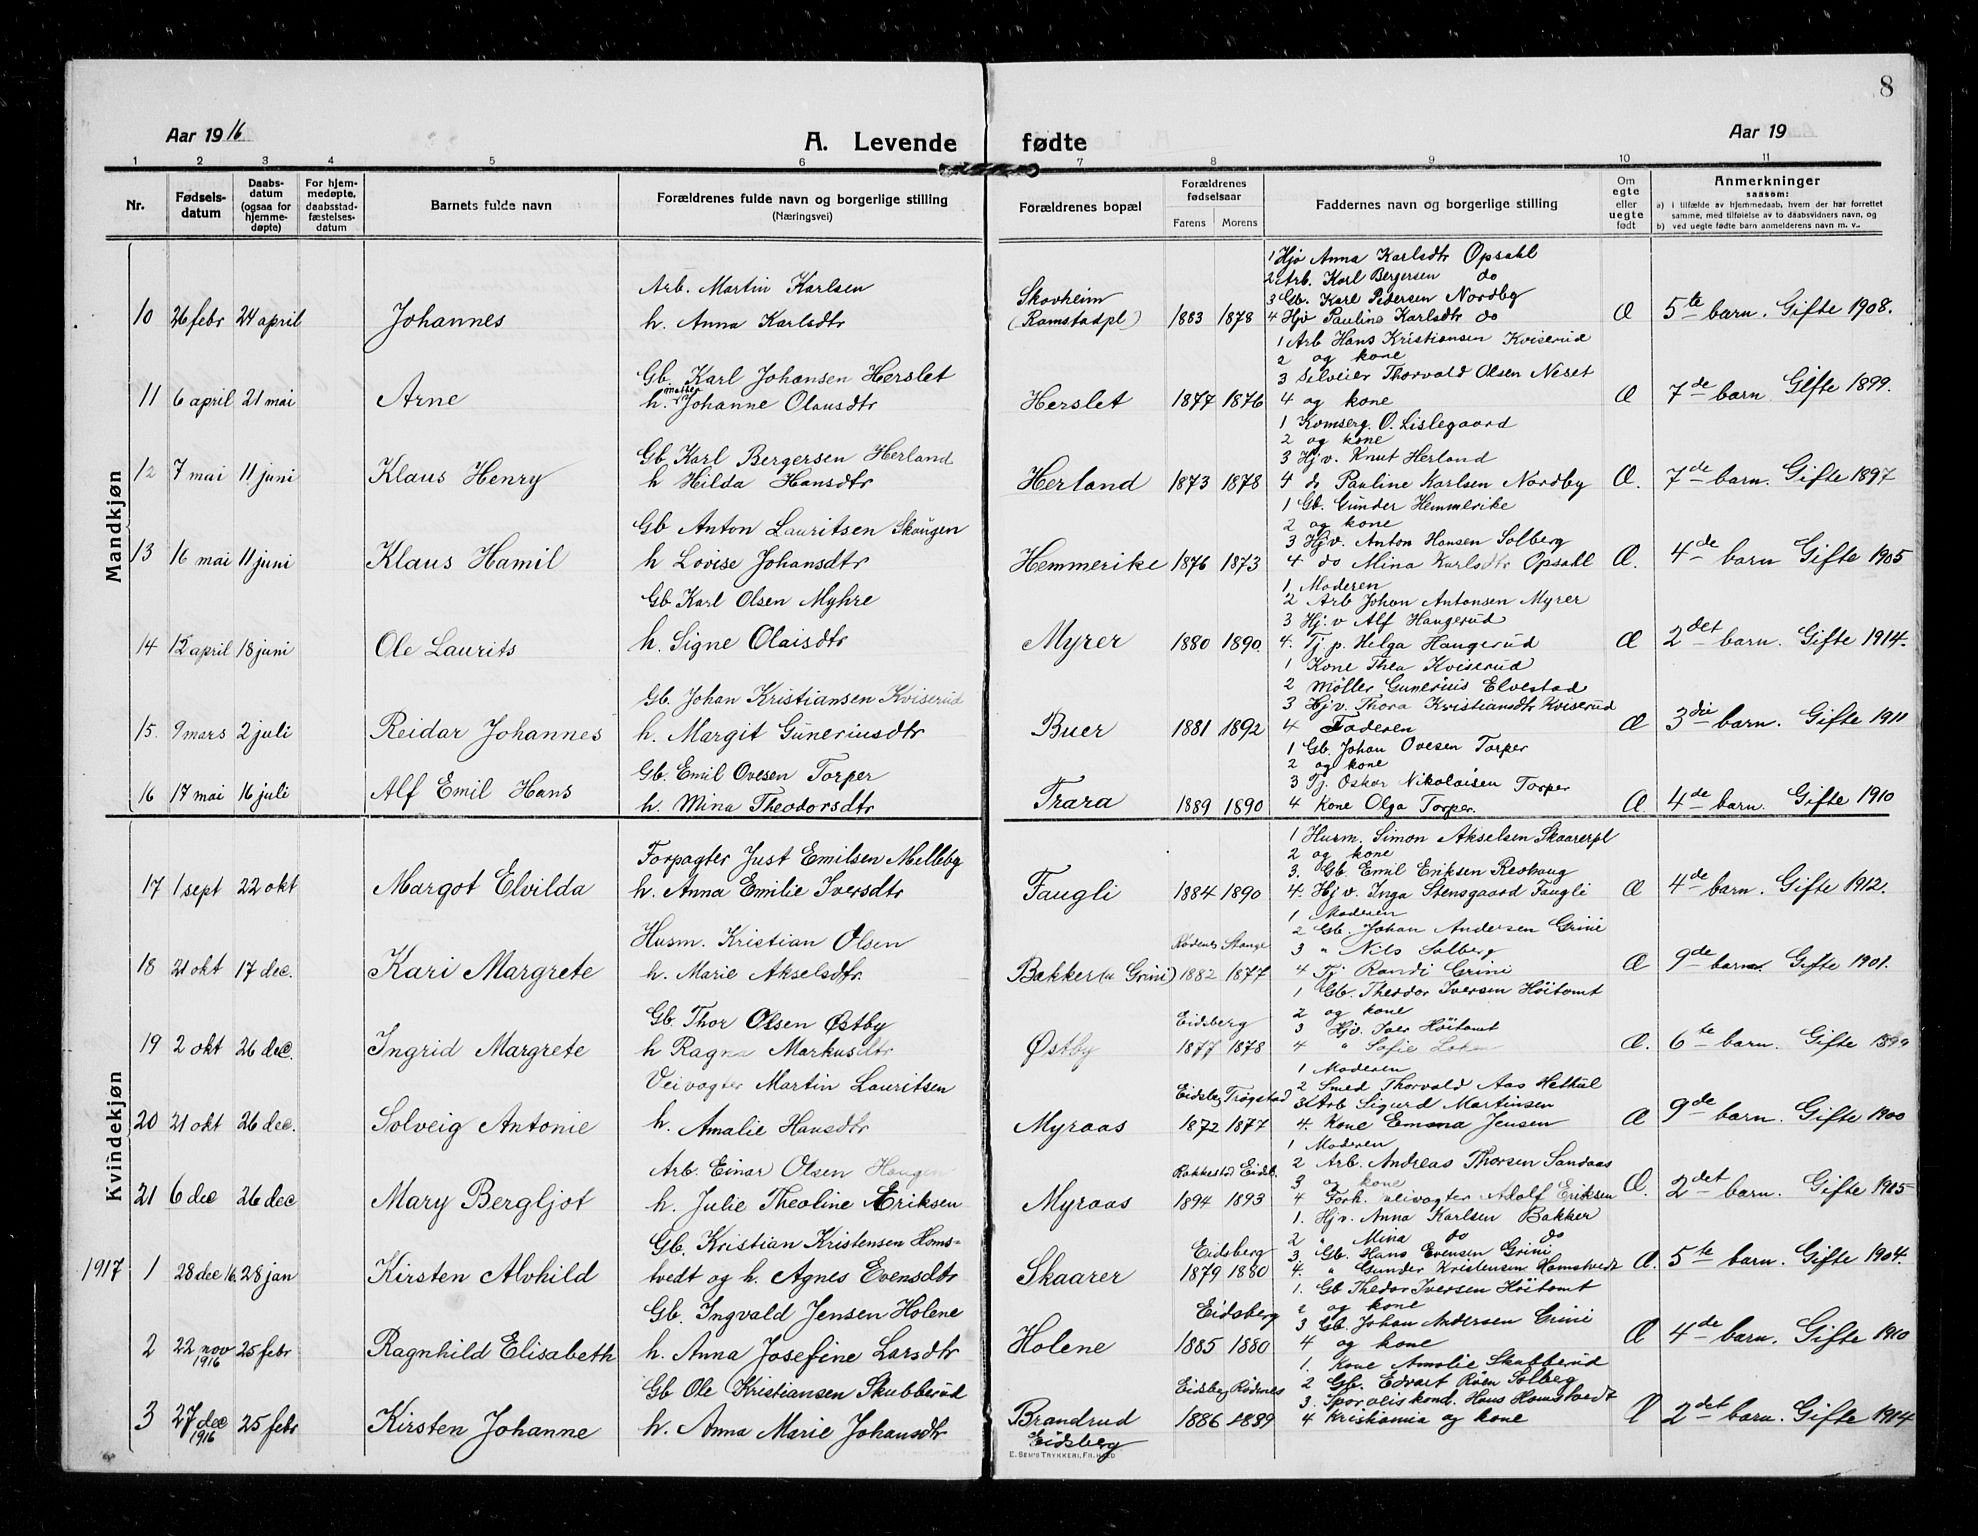 8
Aar 1916
A. Levende fødte
Aar 19
1 2 3 4 5 6 7 8 9 10 11
Nr.
Fødsels-
datum
Daabs-
datum
(ogsaa for
hjemme-
døpte)
For hjem-
medøpte,
daabsstad-
fæstelses-
datum
Barnets fulde navn
Forældrenes fulde navn og borgerlige stilling
(Næringsvei)
Forældrenes bopæl
Forældrenes
fødselsaar
Farens Morens
Faddernes navn og borgerlige stilling
Om
egte
eller
uegte
født
Anmerkninger
saasom:
a) i tilfælde av hjemmedaab, hvem der har forrettet
samme, med tilføielse av to daabsvidners navn, og
b) ved uegte fødte barn anmelderens navn m. v..
Mandkjøn
10 26 febr 24 april Johannes
Arb. Martin Karlsen
h. Anna Karlsdtr
Skovheim
(Ramstadpl) 1883 1878
1 Hjv Anna Karlsdtr Opsahl
2 Arb. Karl Bergersen do
3 Gb. Karl Pedersen Nordby
4 Hjv Pauline Karlsdtr do
Æ 5te barn. Gifte 1908.
11 6 april 21 mai Arne
Gb. Karl Johansen Herslet
h. Mathea Johanne Olausdtr
Herslet 1877 1876
1 Arb Hans Kristiansen Kviserud
2 og kone
3 Selveier Thorvald Olsen Neset
4 og kone
Æ 7de barn. Gifte 1899.
12 7 mai 11 juni Klaus Henry
Gb. Karl Bergersen Herland
h Hilda Hansdtr
Herland 1873 1878
1 Komserg. O. Lislegaard
2 og kone
3 Hjv. Knut Herland
4 do Pauline Karlsen Nordby
Æ. 7de barn. Gifte 1897
13 16 mai 11 juni Klaus Hamil
Gb Anton Lauritsen Skaugen
h Lovise Johansdtr
Hemmerike 1876 1873
1 Gb. Gunder Hemmerike
2 og kone
3 Hjv. Anton Hansen Solberg
4 do Mina Karlsdtr Opsahl
Æ. 4de barn Gifte 1905
14 12 april 18 juni Ole Laurits
Gb Karl Olsen Myhre
h. Signe Olaisdtr
Myrer 1880 1890.
1 Moderen
2 Arb Johan Antonsen Myrer
3 Hj.v Alf Haugerud
4. Tj. p. Helga Haugerud
Æ 2det barn. Gifte 1914.
15. 9 mars 2 juli Reidar Johannes
Gb. Johan Kristiansen Kviserud
h. Margit Guneriusdtr
Buer 1881 1892
1 Kone Thea Kviserud
2 Møller Gunerius Elvestad
3 Hjv. Thora Kristiansdtr Kviserud
4 Faderen
Æ 3die barn. Gifte 1911
16 17 mai 16 juli Alf Emil Hans
Gb. Emil Ovesen Torper
h. Mina Theodorsdtr
Trara 1889 1890
1 Gb. Johan Ovesen Torper
2 og kone
3 Tj. Oskar Nikolaisen Torper
4 Kone Olga Torper.
Æ. 4de barn. Gifte 1910
Kvindekjøn
17 1 sept 22 okt Margot Elvilda
Forpagter Just Emilsen Melleby
h. Anna Emilie Iversdtr
Faugli 1884 1890
1 Husm. Simon Akselsen Skaarerpl
2 og kone
3. Gb. Emil Eriksen Revhaug
4. Hjv. Inga Stensgaard Faugli
Æ 4de barn. Gifte 1912.
18 21 okt 17 dec. Kari Margrete
Husm. Kristian Olsen
h. Marie Akselsdtr.
Bakker (u Grini) Rødenes Stange
1882 1877
1 Moderen
2 Gb. Johan Andersen Grini
3 " Nils Solberg
4 Tj Randi Grini
Æ 9de barn. Gifte 1901.
19 2 okt 26 dec. Ingrid Margrete
Gb. Thor Olsen Østby
h Ragna Markusdtr
Østby Eidsberg
1877 1878
1 Gb. Theodor Iversen Høitomt
2 og kone
3 Hjv. Iver Høitomt
4 " Sofie
Æ. 6te barn. Gifte 1899
20 21 okt 26 dec. Solveig Antonie
Veivogter Martin Lauritsen
h. Amalie Hansdtr
Myraas Eidsbg Trøgstad
1872 1877
1 Moderen
2 Smed Thorvald Aas Hetkul
3 Arb Sigurd Martinsen
4. Kone Emma Jensen
Æ 9de barn. Gifte 1900
21 6 dec 26 dec Mary Bergljot
Arb. Einar Olsen Haugen
h. Julie Theoline Eriksen
Myraas Rakkestad Eidsb.
1894 1893
1 Moderen
2 Arb. Andreas Thorsen Sandaas
3 og kone
4 Forh. veivogter Adolf Eriksen
Æ. 2det barn. Gifte 1915
1917 1 28 dec 16. 28 jan Kirsten Alvhild
Gb. Kristian Kristensen Homs=
tvedt og h. Agnes Evensdtr
Skaarer Eidsberg
1879 1880
1. Hjv. Anna Karlsen Bakker
2 " Mina do do
3. Gb. Hans Evensen Grini
4. " Gunder Kristensen Homstvedt
Æ. 5te barn. Gifte 1904.
2 22 nov 1916 25 febr Ragnhild Elisabeth
Gb. Ingvald Jensen Holene
h. Anna Josefine Larsdtr
Holene Eidsberg
1885 1880
1. Gb Thedor Iversen Høitomt
2 og kone
3 Gb. Johan Andersen Grini
4 og kone
Æ 4de barn. Gifte 1910
3 27 dec 1916 25 febr Kirsten Johanne
Gb Ole Kristiansen Skubberud
h. Anna Marie Johansdtr
Brandrud
Eidsberg Eidsbg Rødenes
1886 1889
1. Kone Amalie Skubberud
2 Gb. Edvart Røen Solberg
3. Sporveiskond. Hans Homstvedt
4 Kristiania og kone
Æ 2det barn. Gifte 1914
E. SEM'S TRYKKERI, FR.HALD